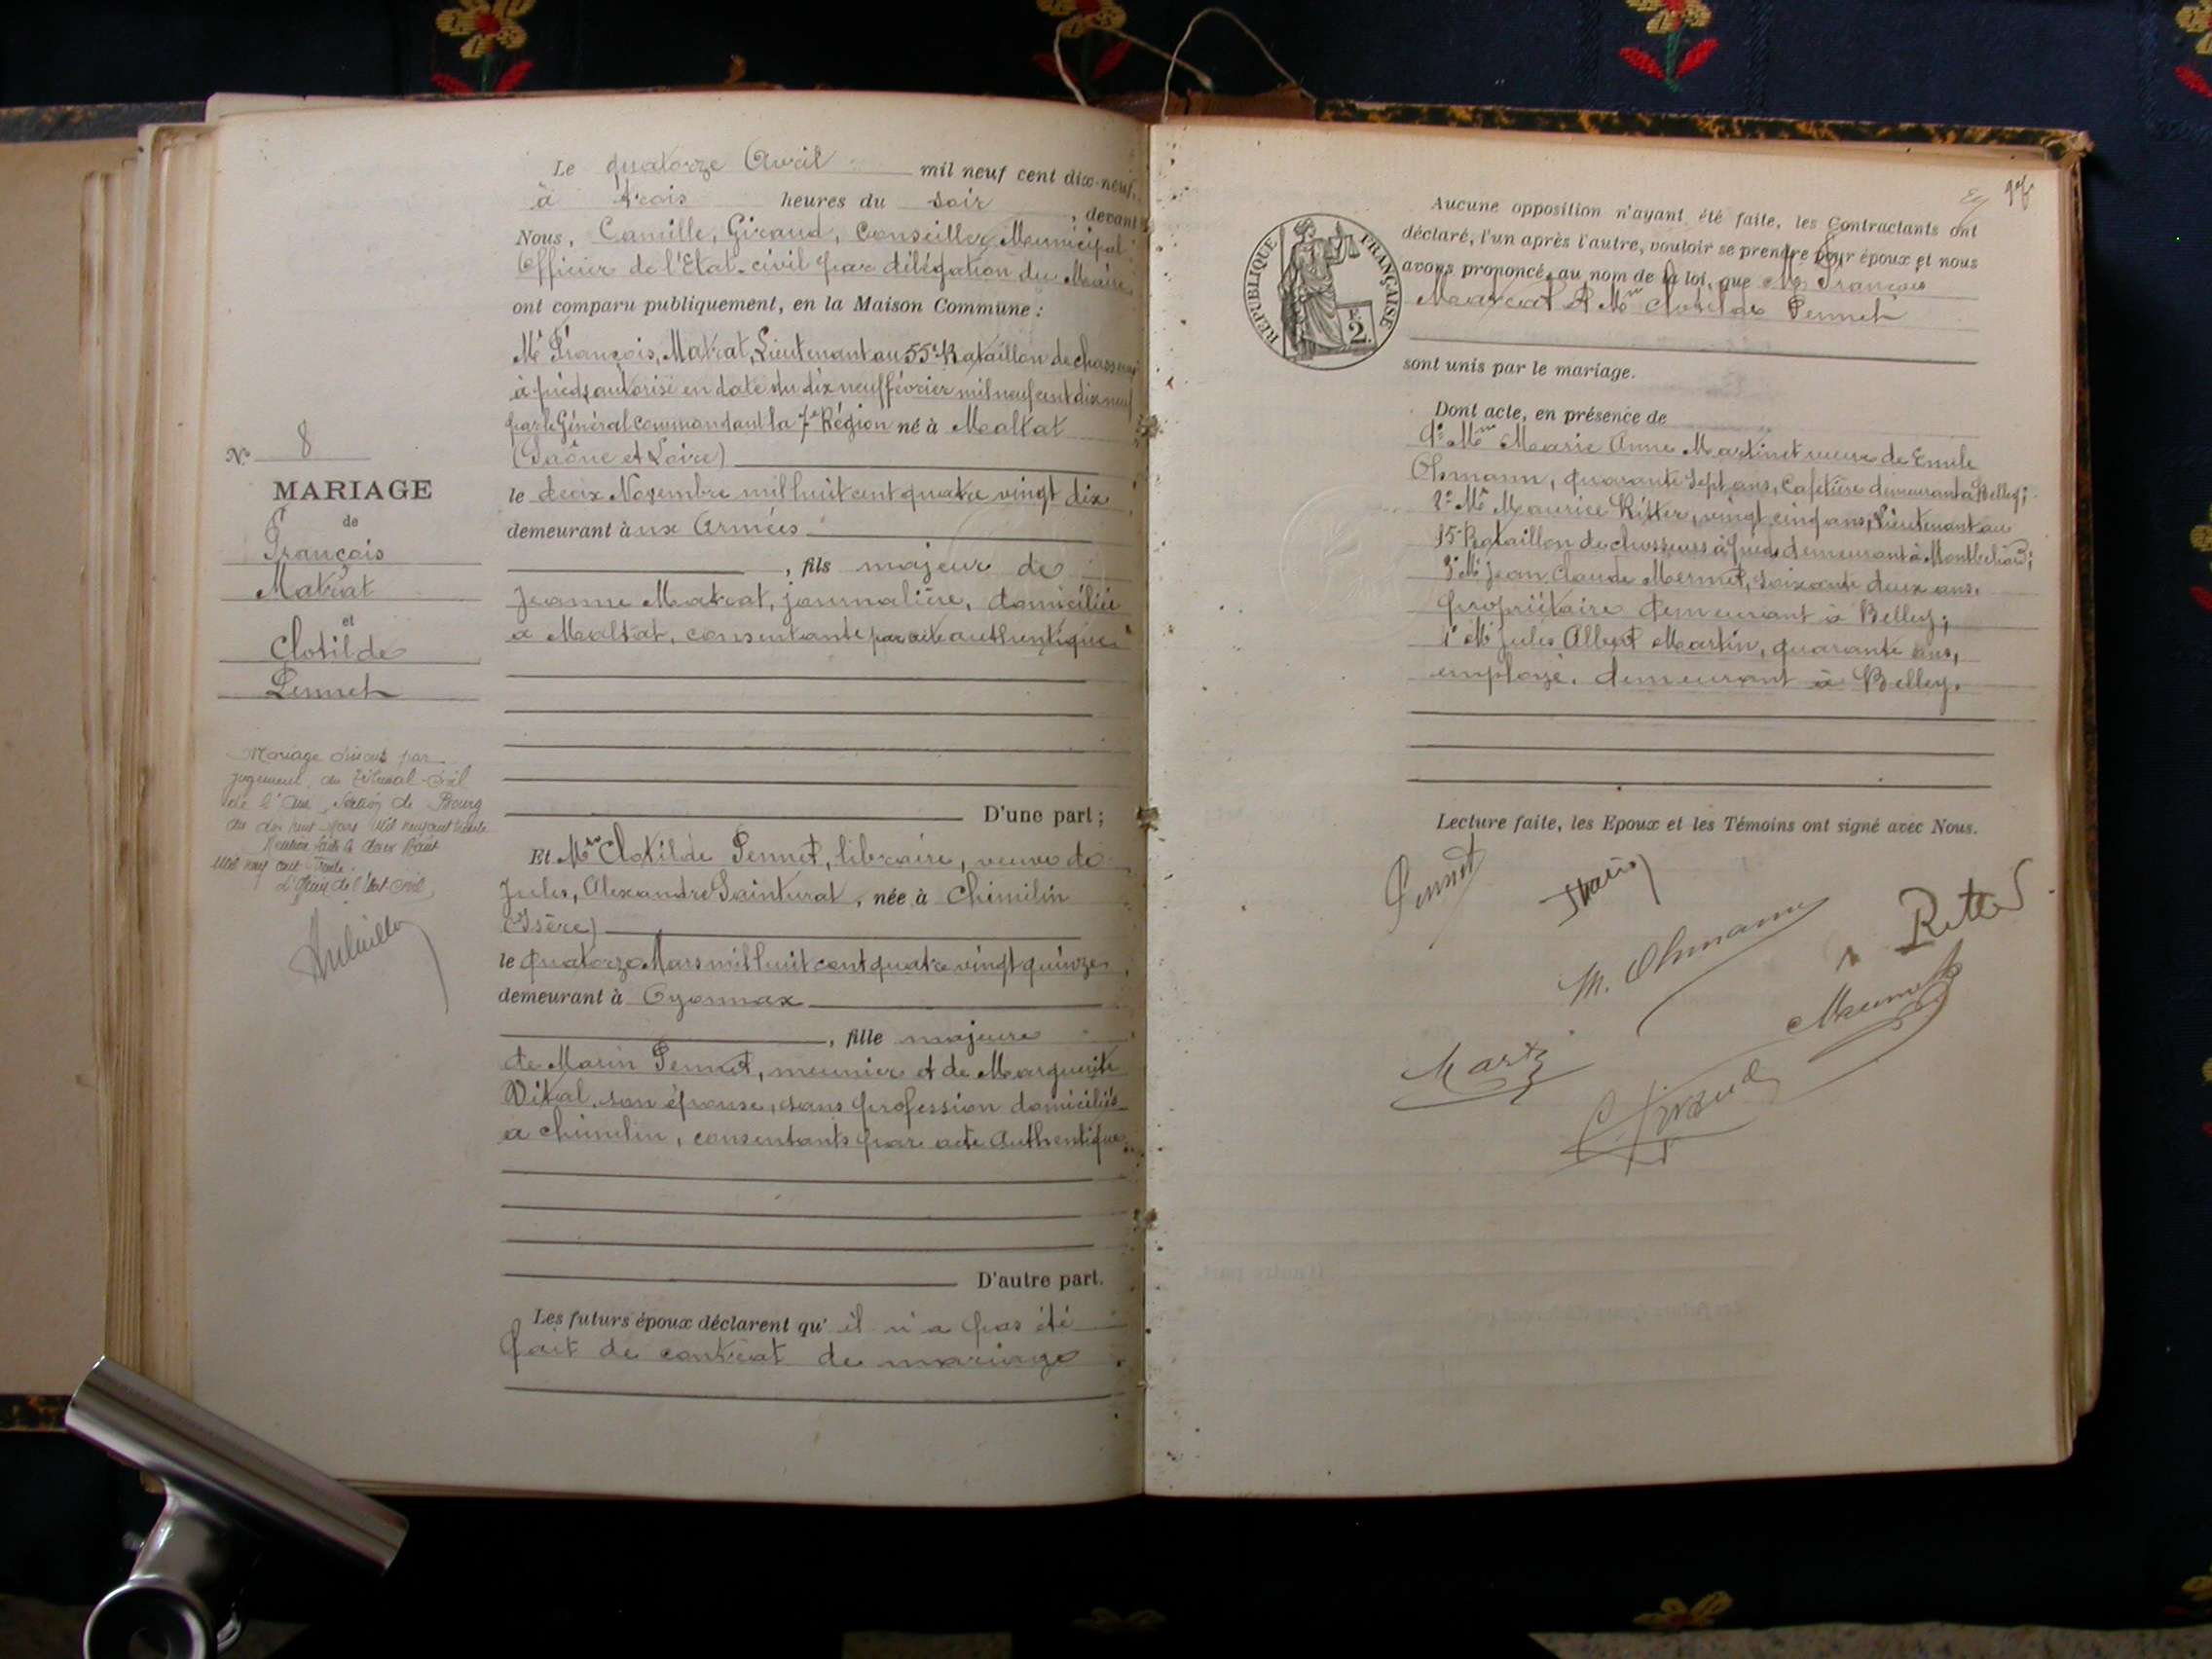 Le quatorze Avril mil neuf cent dix-neuf,
à trois heures du soir, devant
Nous, Camille, Giraud, Conseiller Municipal
Officier de l'Etat-civil par délégation du Maire
ont comparu publiquement, en la Maison Commune :
Mr François, Matrat, Lieutenant au 55e Bataillon de chasseurs
à pieds autorisé en date du dix neuf février mil neuf cent dix neuf
par le Général Commandant la 7e Région né à Maltat
(Saône et Loire)
le deux Novembre mil huit cent quatre vingt dix
demeurant aux Armées
, fils majeur de
Jeanne Matrat, journalière, domiciliée
à Maltat, consentante par acte authentique
D'une part ;
Et Mme Clotilde Pennet, libraire, veuve de
Jules, Alexandre, née à Chimilin
(Isère)
le quatorze Mars mil huit cent quatre vingt quinze
demeurant à Oyonnax
, fille majeure
de Marin Pennet, meunier et de Marguerite
Vital, son épouse, sans profession domiciliés
à Chimilin, consentants par acte Authentique
D'autre part.
Les futurs époux déclarent qu'il n'a pas été
fait de contrat de mariage
No 8
MARIAGE
de
François
Matrat
et
Clotilde
Pennet
Mariage dissous par
jugement du Tribunal Civil
de l'Ain, Section de Bourg
du dix huit Mars Mil neuf cent trente
Mention faite le deux Août
Mil neuf cent Trente.
L'Officier de l'Etat-Civil
Aucune opposition n'ayant été faite, les Contractants ont
déclaré, l'un après l'autre, vouloir se prendre pour époux et nous
avons prononcé, au nom de la loi, que Mr François
Matrat & Mme Clotilde Pennet
sont unis par le mariage.
RÉPUBLIQUE FRANÇAISE
2
Dont acte, en présence de
1° Mme Marie Anne Martinet veuve de Emile
Ohmann, quarante sept ans, Cafetière demeurant à Belley ;
2° Mr Maurice Ritter, vingt cinq ans, Lieutenant au
15e Bataillon de chasseurs à pieds demeurant à Montbéliard ;
3° Mr Jean Claude Mermet, soixante deux ans,
propriétaire demeurant à Belley ;
4° Mr Jules Albert Martin, quarante ans,
employé, demeurant à Belley.
Lecture faite, les Epoux et les Témoins ont signé avec Nous.
Pennet
M. Ohmann
Ritter
Mermet
C. Giraud